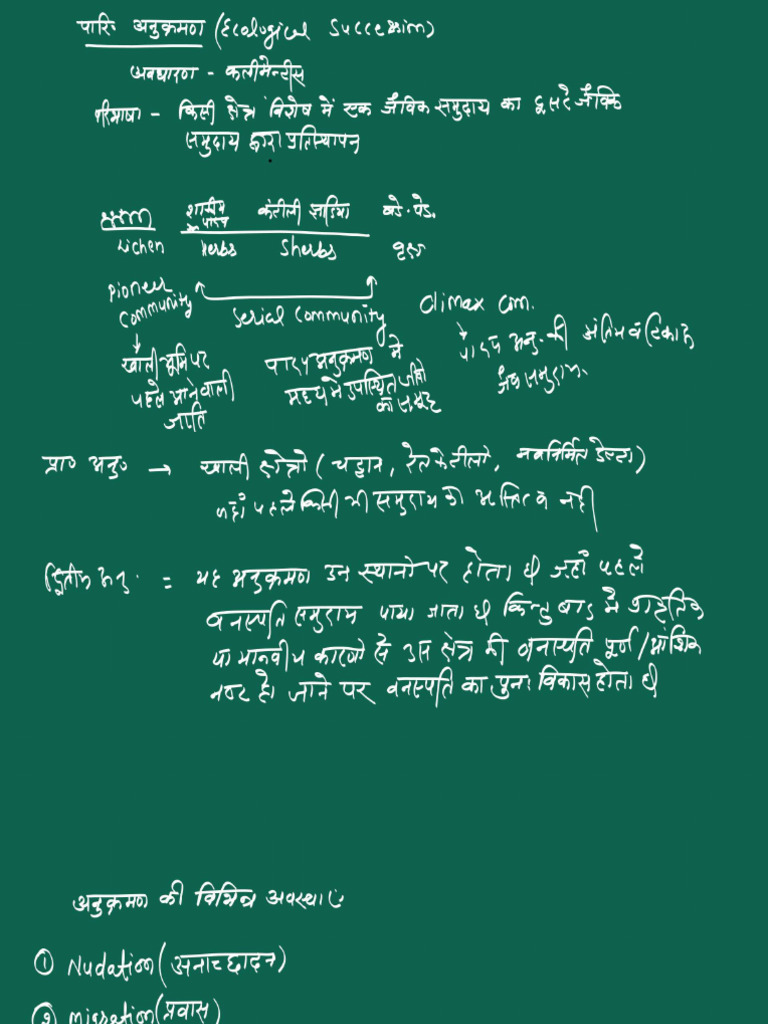 पारि॰ अनुक्रमण (Ecological Succession)
अवधारणा - क्लीमेन्टीस
परिभाषा - किसी क्षेत्र विशेष में एक जैविक समुदाय का दूसरे जैविक
समुदाय द्वारा प्रतिस्थापन
शाकीय कंटीली झाडिया बडे. पेड.
के पादप
Lichen Herbs Sherbs वृक्ष
Pioneer
Community Serial Community Climax com.
खाली भूमि पर पादप अनुक्रमण में पादप अनु. की अंतिम व टिकाऊ
पहले आने वाली मध्य में उपस्थित जीवो जैव समुदाय.
जाति का समूह
प्रा॰ अनु॰ → खाली क्षेत्रो (चट्टान, रेत के टीलो, नवनिर्मित डेल्टा)
जहाँ पहले किसी भी समुदाय का अस्तित्व नही
द्वितीय अनु. = यह अनुक्रमण उन स्थानो पर होता है जहाँ पहले
वनस्पति समुदाय पाया जाता है किन्तु बाद में प्राकृतिक
या मानवीय कारणो से उस क्षेत्र की वनस्पति पूर्ण/आंशिक
नष्ट हो जाने पर वनस्पति का पुनः विकास होता है
अनुक्रमण की विभिन्न अवस्थाएं
① Nudation (अनाच्छादन)
② Migration (प्रवास)